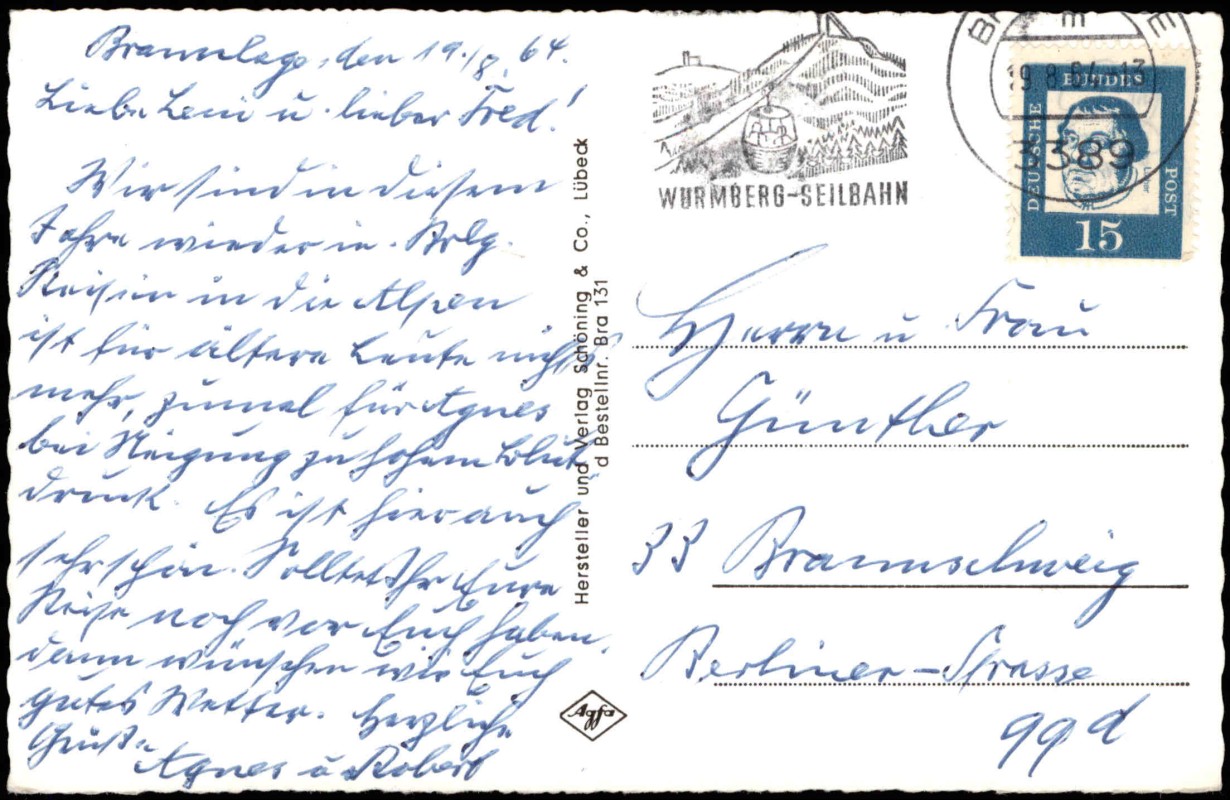 Braunlage, den 19./8. 64.
Liebe Leni u. lieber Fred!
Wir sind in diesem
Jahre wieder in Brlg.
Reisen in die Alpen
ist für ältere Leute nichts
mehr, zumal für Agnes
bei Neigung zu hohem Blut-
druck. Es ist hier auch
sehr schön. Solltet Ihr Eure
Reise noch vor Euch haben,
dann wünschen wir Euch
gutes Wetter. Herzliche
Grüße
Agnes u. Robert
Hersteller und Verlag Schöning & Co., Lübeck
d Bestellnr. Bra 131
Agfa
WURMBERG-SEILBAHN
19.8.64-13
3389
DEUTSCHE
BUNDES
POST
15
Herrn u Frau
Günther
33 Braunschweig
Berliner-Strasse
99 d